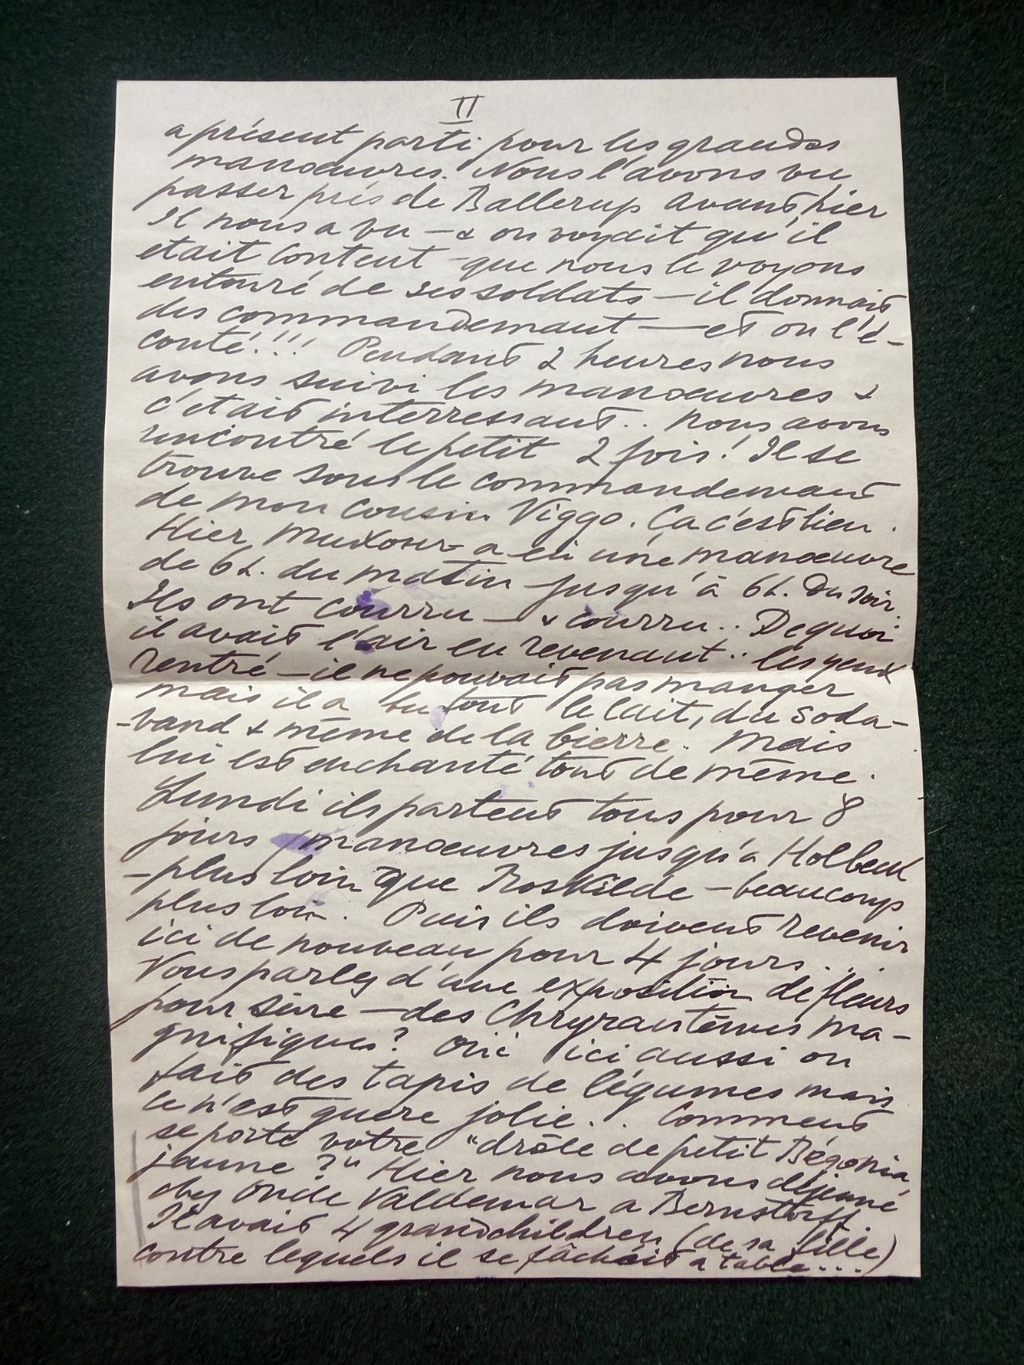 II
a présent parti pour les grandes
manœuvres. Nous l'avons vu
passer près de Ballerup avant hier
Il nous a vu — & on voyait qu'il
était content – que nous le voyons
entouré de ses soldats — il donnait
des commandemant — et on l'é-
couté!!! Pendant 2 heures nous
avons suivi les manœuvres &
c'etait interressant.. nous avons
rencontré le petit 2 fois! Il se
trouve sous le commandemant
de mon cousin Viggo. Ça c'est bien.
Hier a eu une manœuvre
de 6h. du matin jusqu'à 6h. du soir.
Ils ont courru — & courru.. De quoi
il avait l'air en revenant.. les yeux
rentré — il ne pouvait pas manger
mais il a bu tout le lait, du soda-
-vand & même de la bierre. Mais
lui est enchanté tout de même.
Lundi ils partent tous pour 8
jours manœuvres jusqu'a Holbeck
– plus loin que Roskilde – beaucoup
plus loin. Puis ils doivent revenir
ici de nouveau pour 4 jours...
Vous parlez d'une exposition de fleurs
pour sûre — des Chrysantèmes ma-
gnifiques? Oui ici aussi on
fait des tapis de légumes mais
ce n'est guère jolie... Comment
se porte votre "drôle de petit Bégonia
jaune?" Hier nous avons déjeuné
chez Oncle Valdemar a Bernstorff.
Il avait 4 grandchildren (de sa fille)
contre lequels il se fâchait a table...)